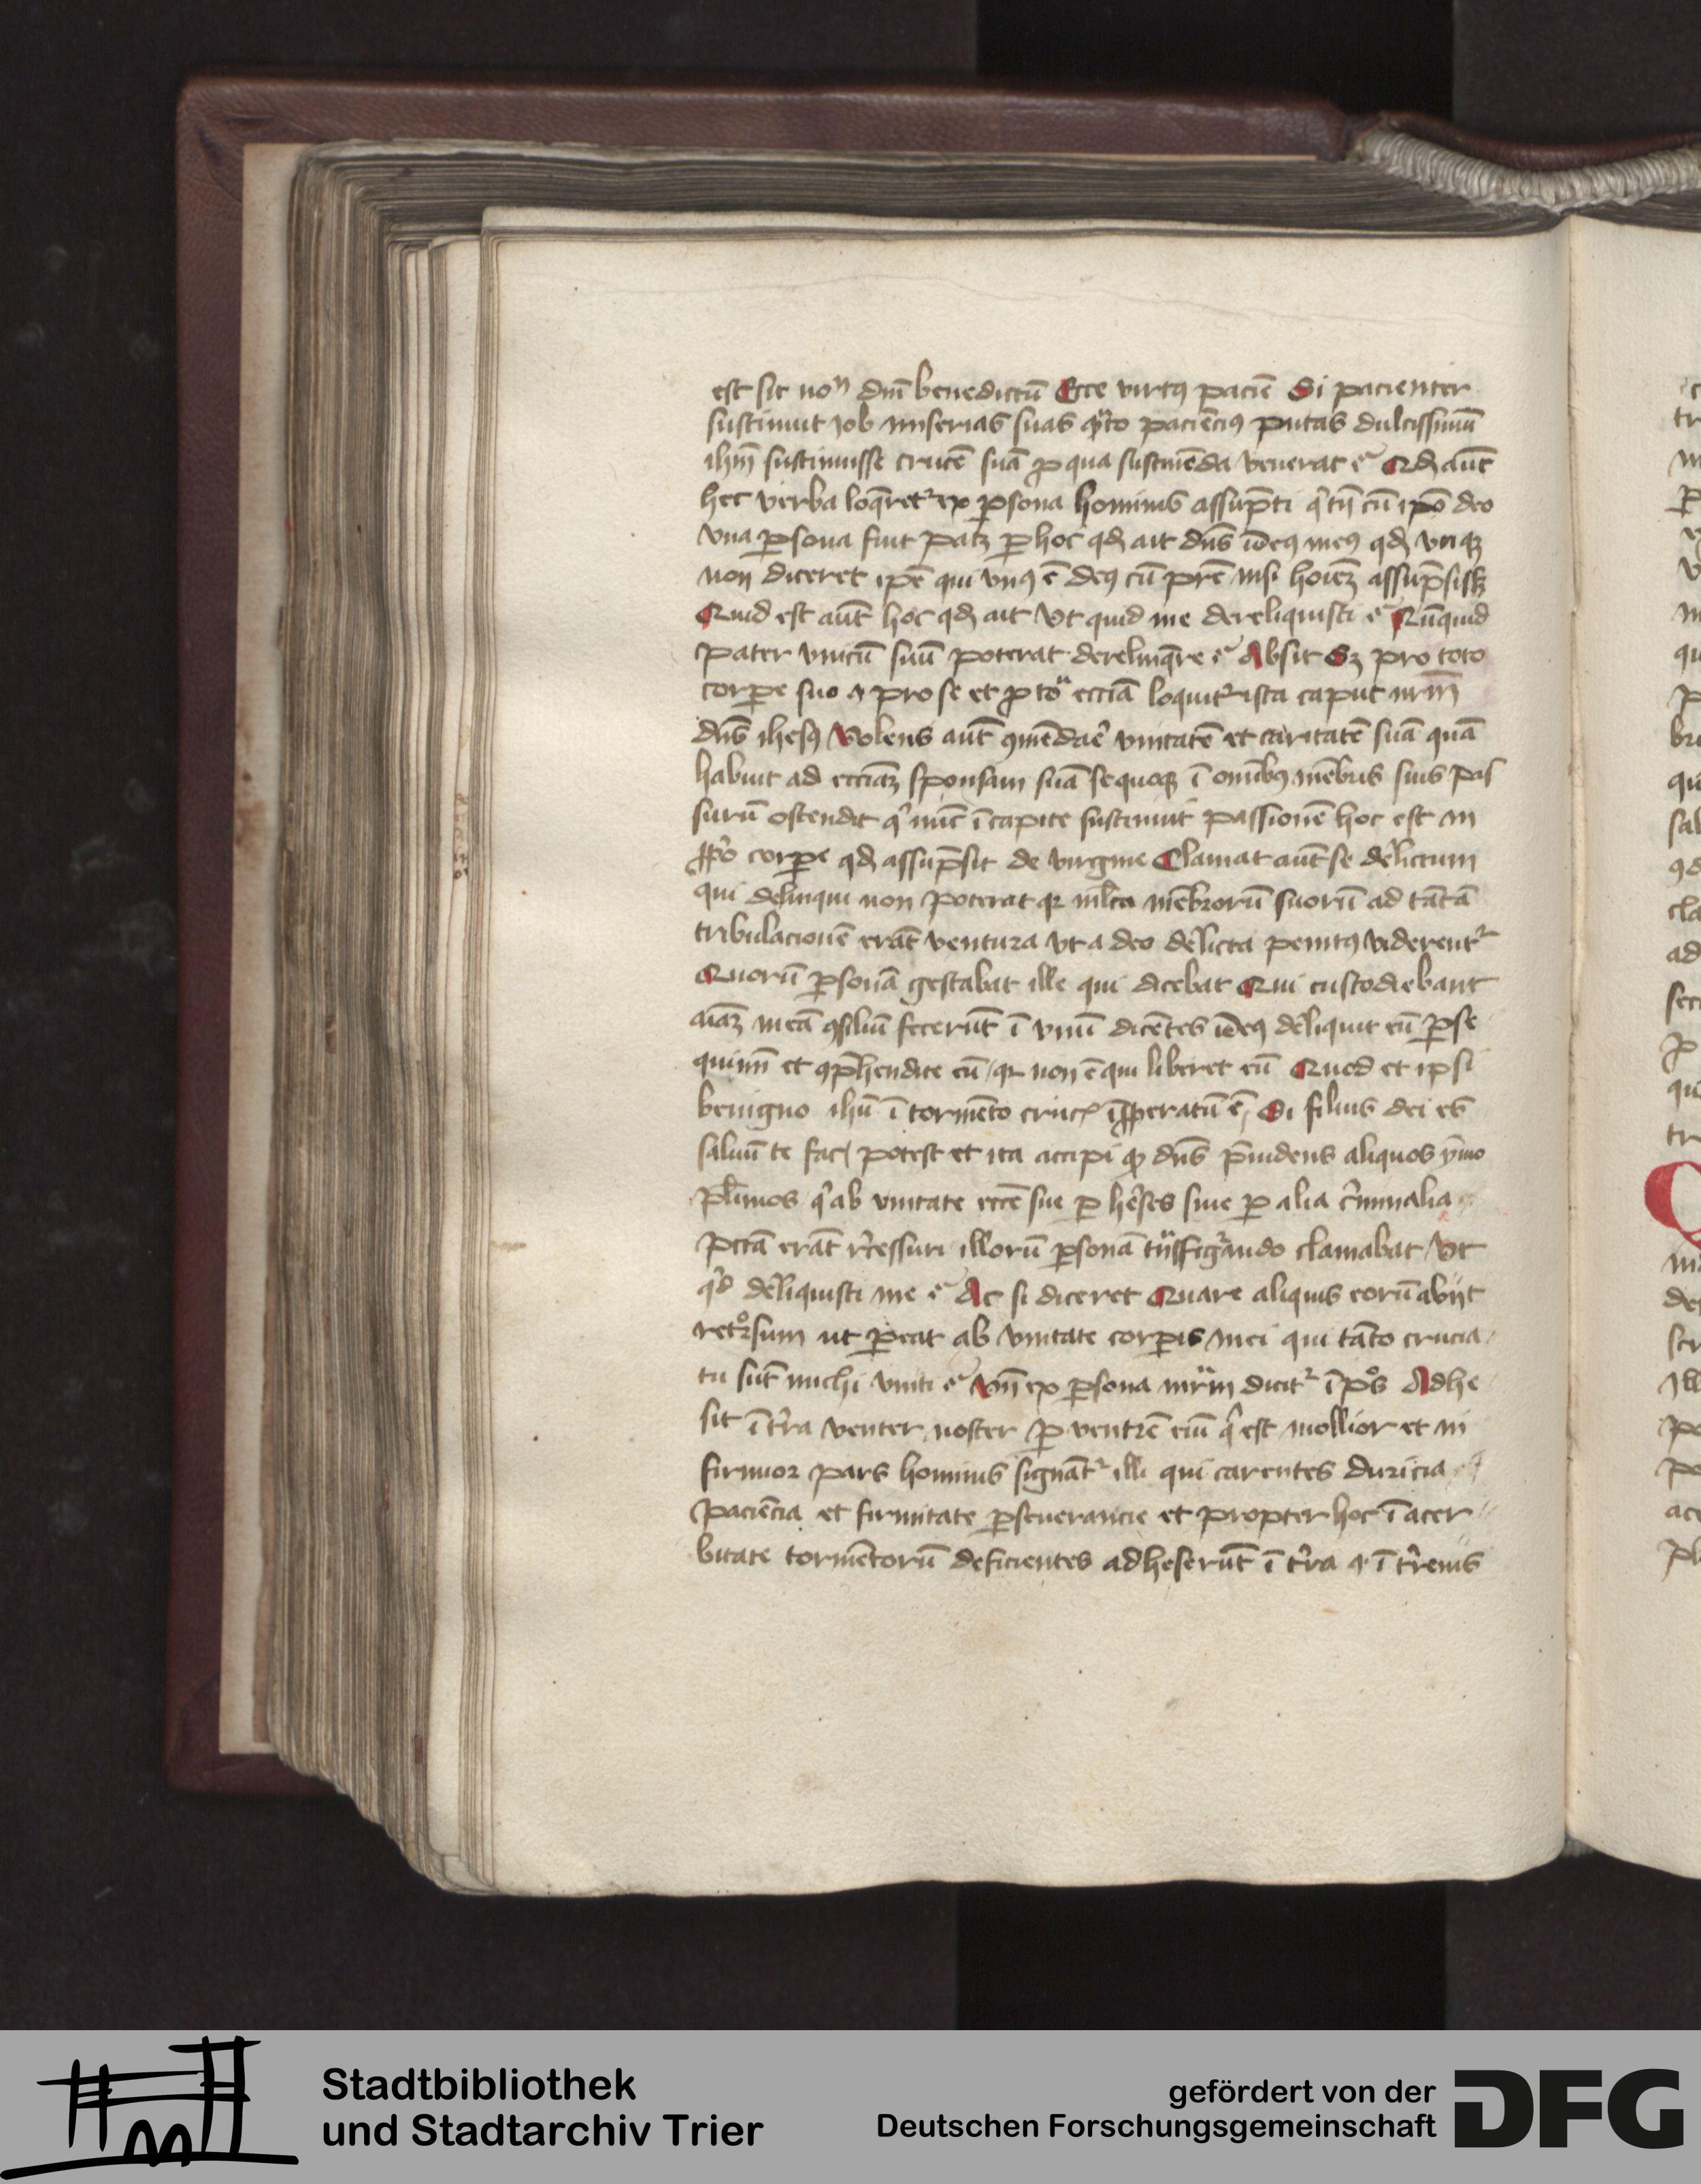 est sit noⁿ dn̄i benedictū Ecce virtꝰ paciē Si pacienter
sustinuit Job miserias suas qᵃto paciēciꝰ putas dulcissimū
ihm̄ sustinuisse crucē suā ꝓ qua sustinēda venerat Qđ aūt
hec verba loq̄retᷣ ex ꝑsona hominis assūpti cū ipō deo
vna ꝑsona fuit patꝫ ꝑ hoc qđ ait dn̄s deꝰ meꝰ qđ vtiqꝫ
non diceret ipē qui vnꝰ ē deꝰ cū prē nisi hoīeꝫ assūpsissꝫ
Quid est aūt hoc qđ ait Vt quid me dereliquisti Nūquid
pater vnicū suū poterat derelinq̄re Absit Sꝫ pro toto
corꝑe suo ⁊ pro se et ꝓ toᵃ eccīa loquitᷣ ista caput nrm̄
dn̄s ihesꝰ Volens aūt ꝯmēdaᷣe vnitatē et caritatē suā quā
habuit ad eccīaꝫ sponsam suā se quoqꝫ ī omībꝰ mēbris suis pas
surū ostendit qͥ nūc ī capite sustinuit passionē hoc est in
ꝓpͥo corꝑe qđ assūpsit de virgine Clamat aūt se delictum
qui delinqui non poterat qꝛ ml̄ta mēbrorū suorū ad tātā
tribulacionē erāt ventura vt a deo delicta penitꝰ viderentᷣ
Quorū ꝑsonā gestabat ille qui dicebat Qui custodiebant
aīaꝫ meā ꝯsiliū fecerūt ī vnū dicētes deꝰ deliquit eū ꝑse
quimī et ꝯp̄hendite eū qꝛ non ē qui liberet eū Quod et ipsi
benigno ihū ī tormēto crucꝭ īꝓperatū ē Si filius dei es
saluū te fac potest et ita accipi qꝫ dn̄s p̄uidens aliquos ymo
pl̄imos qͥ ab vnitate eccē sue ꝑ heᷣses siue ꝑ alia cͥminalia
pctā erāt rᷣcessuri illorū ꝑsonā tᷣnsfigᷣando clamabat Vt
qͥd deliquisti me Ac si diceret Quare aliquis eorū abijt
retᷣorsum ut ꝑeat ab vnitate corꝑis mei qui tāto crucia
tu sūt michi vniti Vn̄ ex ꝑsona mrᷣm dicitᷣ ī pˢ Adhe
sit ī tᷣra venter noster ꝑ ventrē eiū qͥ est mollior et in
firmior pars hominis signātᷣ illi qui carentes duricia
paciēcia et firmitate ꝑseuerancie et propter hoc ī acer
bitate tormētorū deficientes adheserūt ī tᷣra ⁊ ī tᷣrenis
Stadtbibliothek
und Stadtarchiv Trier
gefördert von der
Deutschen Forschungsgemeinschaft
DFG